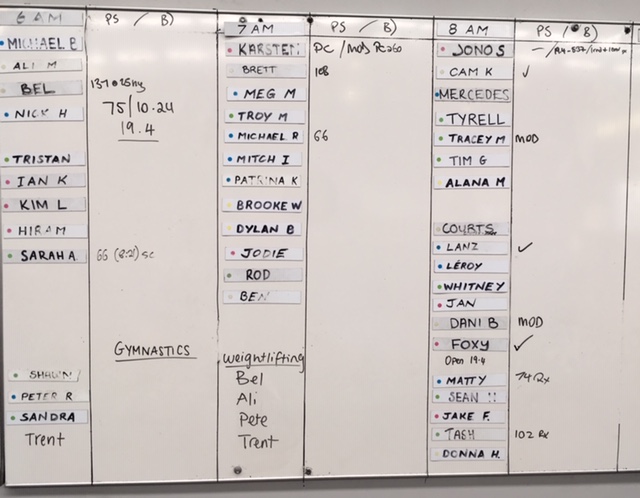 6 AM PS / B)
MICHAEL B
ALI M
BEL
NICK H 75/10.24
19.4
TRISTAN
IAN K
KIM L
HIRAM
SARAH A 66 (8:2) SC
GYMNASTICS
SHAUN
PETER R
SANDRA
Trent
7 AM PS / B)
KARSTEN PC /
BRETT 108
MEG M
TROY M
MICHAEL R 66
MITCH I
PATRINA K
BROOKE W
DYLAN B
JODIE
ROD
BEN
weightlifting
Bel
Ali
Pete
Trent
8 AM PS / B)
JONO S
CAM K ✓
MERCEDES
TYRELL
TRACEY M MOD
TIM G
ALANA M
COURTS
LANZ ✓
LEROY
WHITNEY
JAN
DANI B MOD
FOXY ✓
Open 19.4
MATTY 74 Rx
SEAN
JAKE F.
TASH 102 Rx
DONNA H.